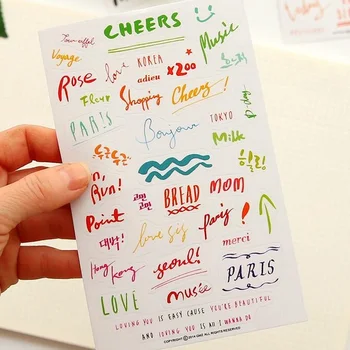 CHEERS
Tour eiffel
Voyage
Music
love
KOREA
adieu
x200
Rose
Fleur
Shopping
Cheers!
PARIS
Bonjour
TOKYO
Milk
두근두근
힐링
Run!
BREAD
MOM
Point
대박!
love sis
paris!
merci
Hong kong
seoul!
PARIS
LOVE
musée
LOVING YOU IS EASY CAUSE YOU'RE BEAUTIFUL
AND LOVING YOU IS ALL I WANNA DO